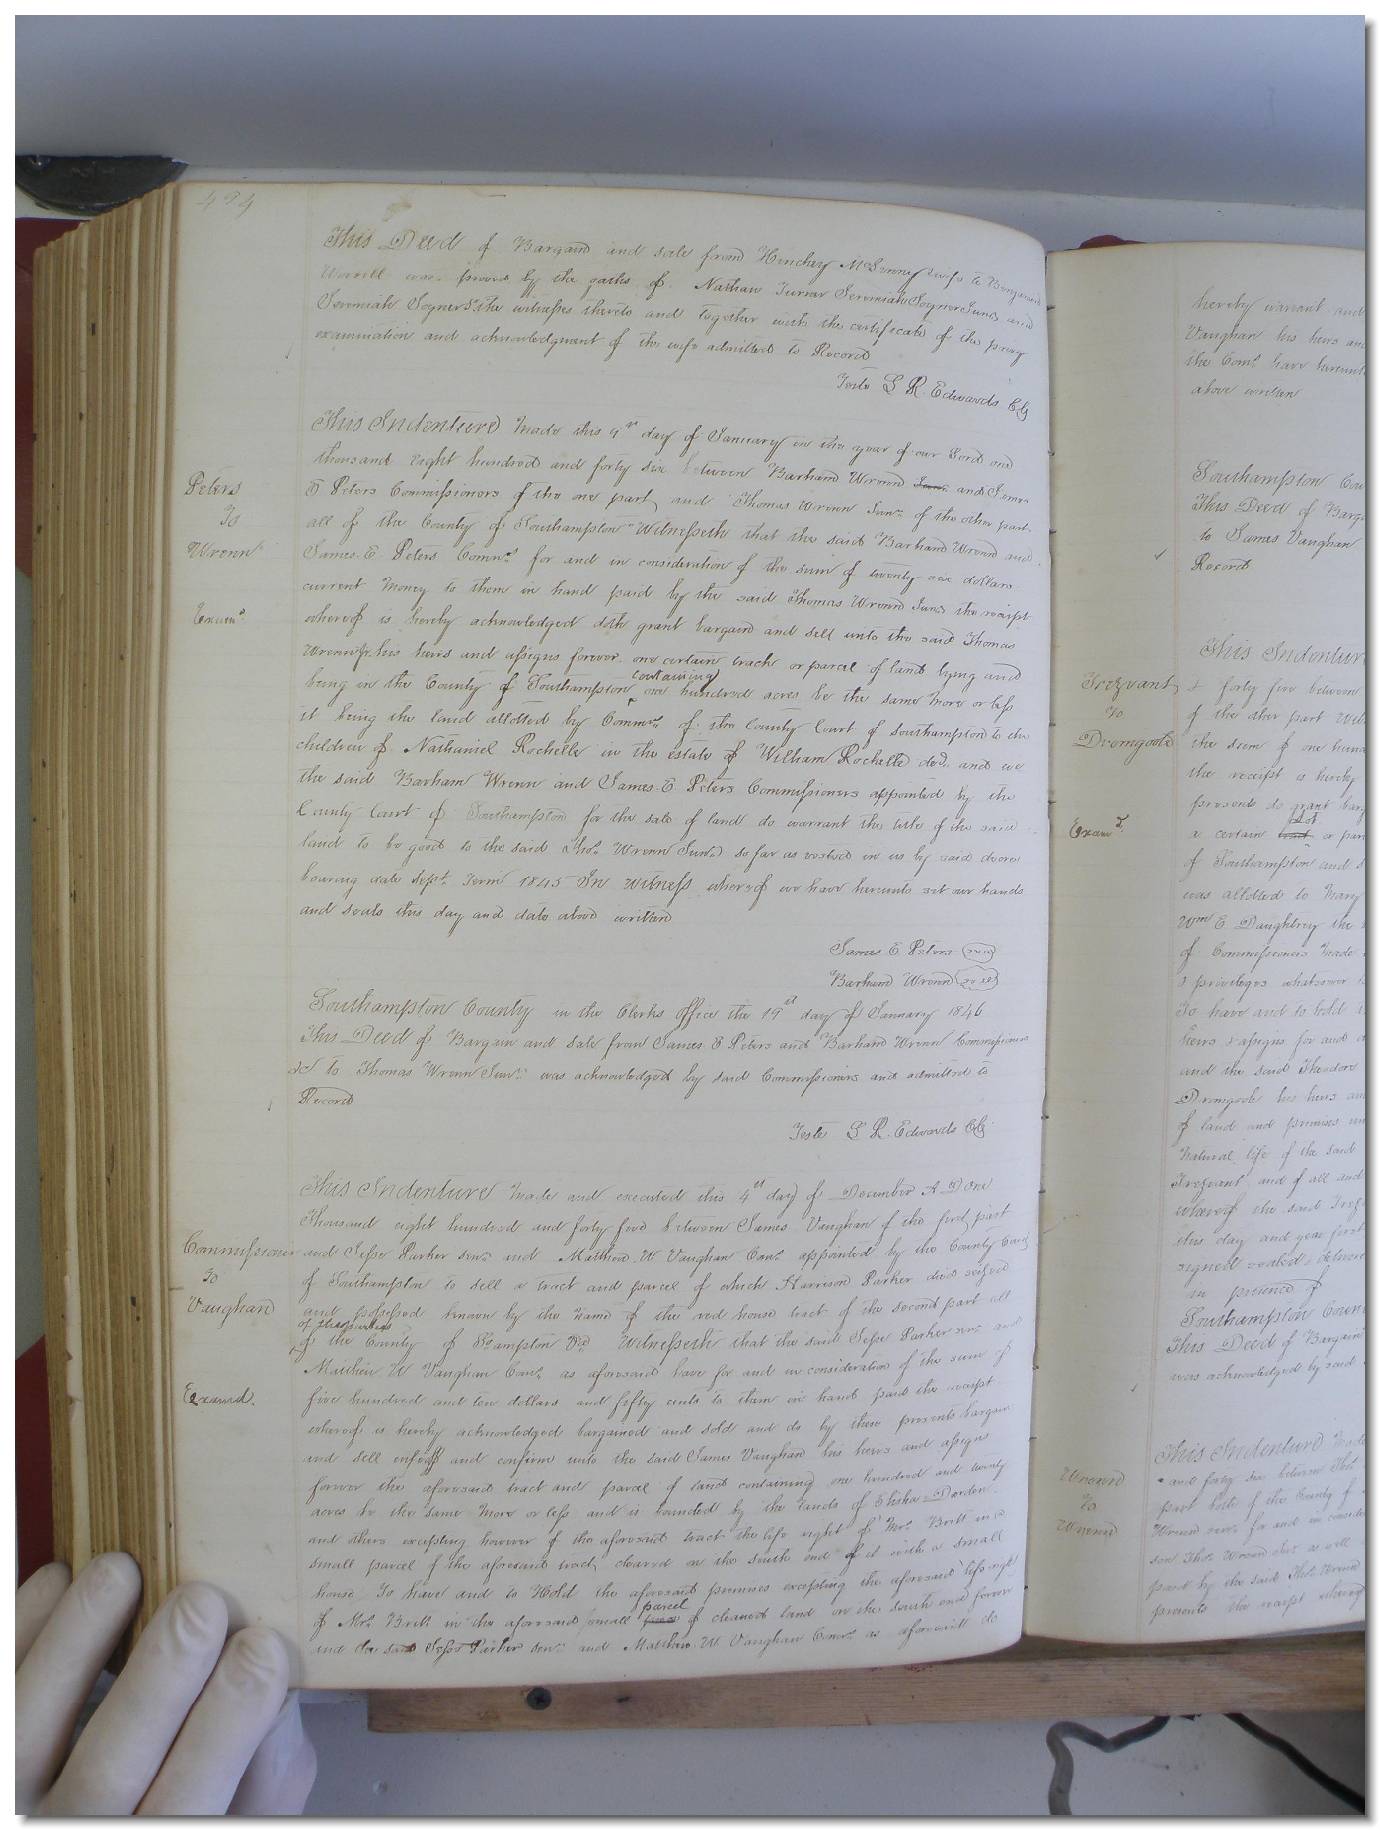 494
This Deed of Bargain and sale from Hinchey McGinney & wife to Benjamin
Worrell was proved by the oaths of Nathan Turner Jeremiah Joyner Junr and
Jeremiah Joyner Sr the witnesses thereto and together with the certificate of the privy
examination and acknowledgment of the wife admitted to Record
Teste L R. Edwards Clk
Peters
To
Wrenn
Examd
This Indenture Made this 9th day of January in the year of our Lord one
thousand eight hundred and forty six between Barham Wrenn and James
E Peters Commissioners of the one part, and Thomas Wrenn Junr of the other part
all of the County of Southampton Witnesseth that the said Barham Wrenn and
James E. Peters Commrs for and in consideration of the sum of twenty six dollars
current money to them in hand paid by the said Thomas Wrenn Junr the receipt
whereof is hereby acknowledged doth grant bargain and sell unto the said Thomas
Wrenn Jr his heirs and assigns forever one certain track or parcel of land lying and
being in the County of Southampton containing one hundred acres be the same more or less
it being the land allotted by Commrs of the County Court of Southampton to the
children of Nathaniel Rochelle in the estate of William Rochelle decd. and we
the said Barham Wrenn and James E Peters Commissioners appointed by the
County Court of Southampton for the sale of land do warrant the title of the said
land to be good to the said Thos. Wrenn Junr so far as vested in us by said decree
bearing date Sept. Term 1845 In Witness whereof we have hereunto set our hands
and seals this day and date above written
James E Peters seal
Barham Wrenn seal
Southampton County in the Clerks Office the 19th day of January 1846
This Deed of Bargain and Sale from James E Peters and Barham Wrenn Commissioners
&c to Thomas Wrenn Junr. was acknowledged by said Commissioners and admitted to
Record
Teste L R. Edwards Clk
Commissioner
To
Vaughan
Examd.
This Indenture Made and executed this 4th day of December A D One
Thousand eight hundred and forty five between James Vaughan of the first part
and Jesse Parker senr and Matthew W Vaughan Comr appointed by the County Court
of Southampton to sell a tract and parcel of which Harrison Parker died seized
and possessed known by the name of the red house tract of the second part all
of the parties
of the County of So.ampton Va Witnesseth that the said Jesse Parker senr and
Matthew W Vaughan Comr as aforesaid have for and in consideration of the sum of
five hundred and ten dollars and fifty cents to them in hand paid the receipt
whereof is hereby acknowledged bargained and sold and do by these presents bargain
and sell enfeoff and confirm unto the said James Vaughan his heirs and assigns
forever the aforesaid tract and parcel of land containing one hundred and twenty
acres be the same more or less and is bounded by the lands of Elisha Darden
and others excepting however of the aforesaid tract the life right of Mrs. Britt in a
small parcel of the aforesaid tract, cleared on the south end of it with a small
house To have and to Hold the aforesaid premises excepting the aforesaid life right
of Mrs. Britt in the aforesaid small parcel of cleared land on the south end forever
and the said Jesse Parker senr and Matthew W Vaughan Comrs as aforesaid do
hereby warrant and
Vaughan his heirs and
the Comrs have hereunto
above written
Southampton Cou
This Deed of Barg
to James Vaughan
Record
Trezvant
To
Dromgoole
Examd.
This Indentur
& forty five between
of the other part Wit
the sum of one hund
the receipt is hereby
presents do grant barg
a certain lot or par
of Southampton and
was allotted to Mary
Wm E Daughtrey the
of Commissioners Made
& privileges whatsoever
To have and to hold
heirs & assigns for and
and the said Theodore
Dromgoole his heirs an
of land and premises
natural life of the said
Trezvant and of all and
whereof the said
this day and year first
signed sealed & deliver
in presence of
Southampton Coun
This Deed of Bargain
was acknowledged by said
Wrenn
To
Wrenn
This Indenture Made
and forty six between Thos
part both of the County of
Wrenn senr for and in consid
son Thos Wrenn Junr as well
paid by the said Thos Wrenn
presents the receipt whereof